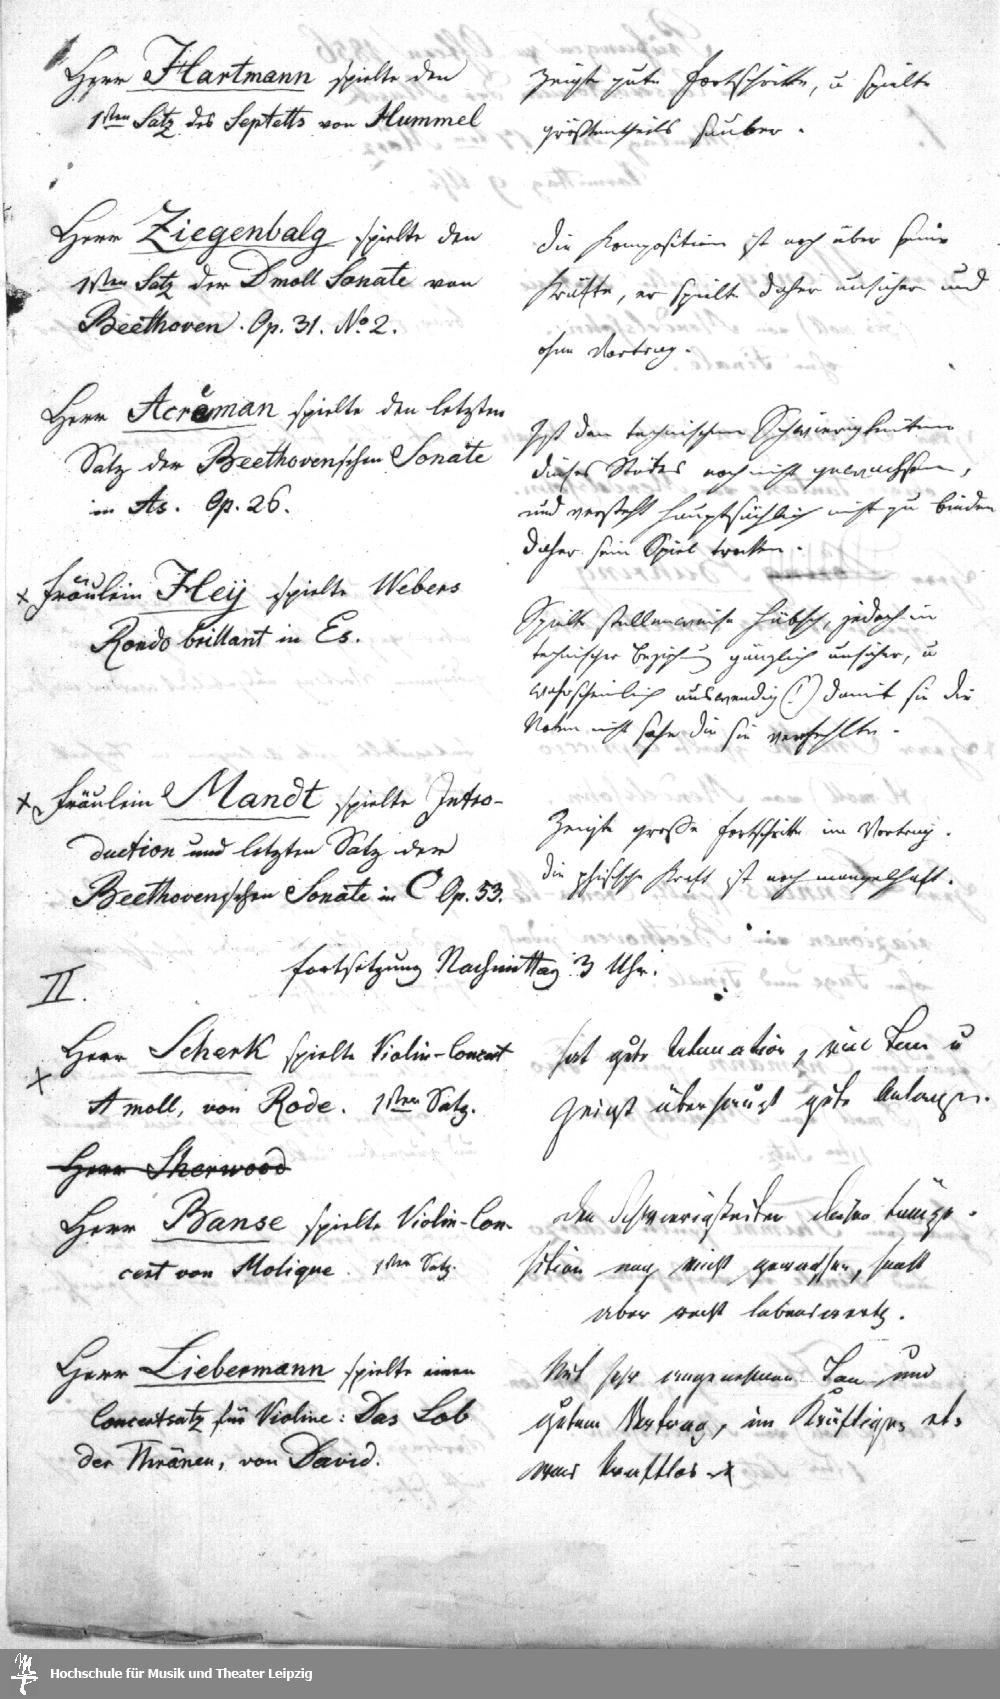 Herr Hartmann spielte den
1sten Satz des Septetts von Hummel
zeigte gute Fortschritte, u spielte
größtentheils sauber.
Herr Ziegenbalg spielte den
1sten Satz der D moll Sonate von
Beethoven. Op. 31. No. 2.
Die Komposition ist noch über seine
Kräfte, er spielte daher unsicher und
ohne Vortrag.
Herr Acreman spielte den letzten
Satz der Beethovenschen Sonate
in As. Op. 26.
Ist den technischen Schwierigkeiten
dieses Satzes noch nicht gewachsen,
und versteht hauptsächlich nicht zu binden
daher sein Spiel trocken.
x Fräulein Heij spielte Webers
Rondo brillant in Es.
Spielte stellenweise hübsch, jedoch in
technischer Beziehung gänzlich unsicher, u
wahrscheinlich auswendig (!) damit sie die
Noten nicht sehe die sie verfehlte.
x Fräulein Mandt spielte Intro-
duction und letzten Satz der
Beethovenschen Sonate in C Op. 53.
Zeigte große Fortschritte im Vortrag.
Die phisische Kraft ist noch mangelhaft.
II. Fortsetzung Nachmittag 3 Uhr.
x Herr Scherk spielte Violin-Concert
A moll, von Rode. 1sten Satz.
Hat gute Intonation, viel Ton u
zeigt überhaupt gute Anlagen.
Herr Sherwood
Herr Banse spielte Violin-Con-
cert von Molique. 1sten Satz.
Den Schwierigkeiten dieser Compo-
sition noch nicht gewachsen, sonst
aber recht lobenswerth.
Herr Liebermann spielte einen
Concertsatz für Violine: Das Lob
der Thränen, von David.
Mit sehr angenehmen Ton und
gutem Vortrag, im Kräftigen et-
was kraftlos
Hochschule für Musik und Theater Leipzig